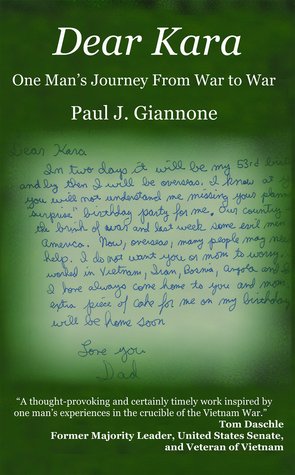 Dear Kara
One Man's Journey From War to War
Paul J. Giannone
Dear Kara
In two days it will be my 53rd
and by then I will be overseas. I know at
you will not understand me missing your
surprise" birthday party for me. Our country
the brink of war and last week some evil men
America. Now, overseas, many people may ne
help. I do not want you or mom to worry.
worked in Vietnam, Iran, Bosnia, and
I have always come home to you and mom
extra piece of cake for me on my birthday
will be home soon
Love you
Dad
"A thought-provoking and certainly timely work inspired by
one man's experiences in the crucible of the Vietnam War."
Tom Daschle
Former Majority Leader, United States Senate,
and Veteran of Vietnam